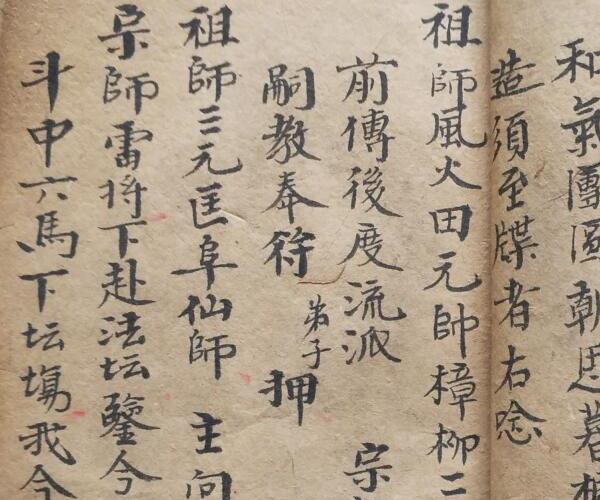 和氣團圓朝思暮想
造須至牒者右唸
祖師風火田元帥樟柳二
前傳後度流派 宗
嗣教奉符弟子 押
祖師三元匡阜仙師 主向
宗師雷将下赴法坛鑒今
斗中六馬下坛塲我今